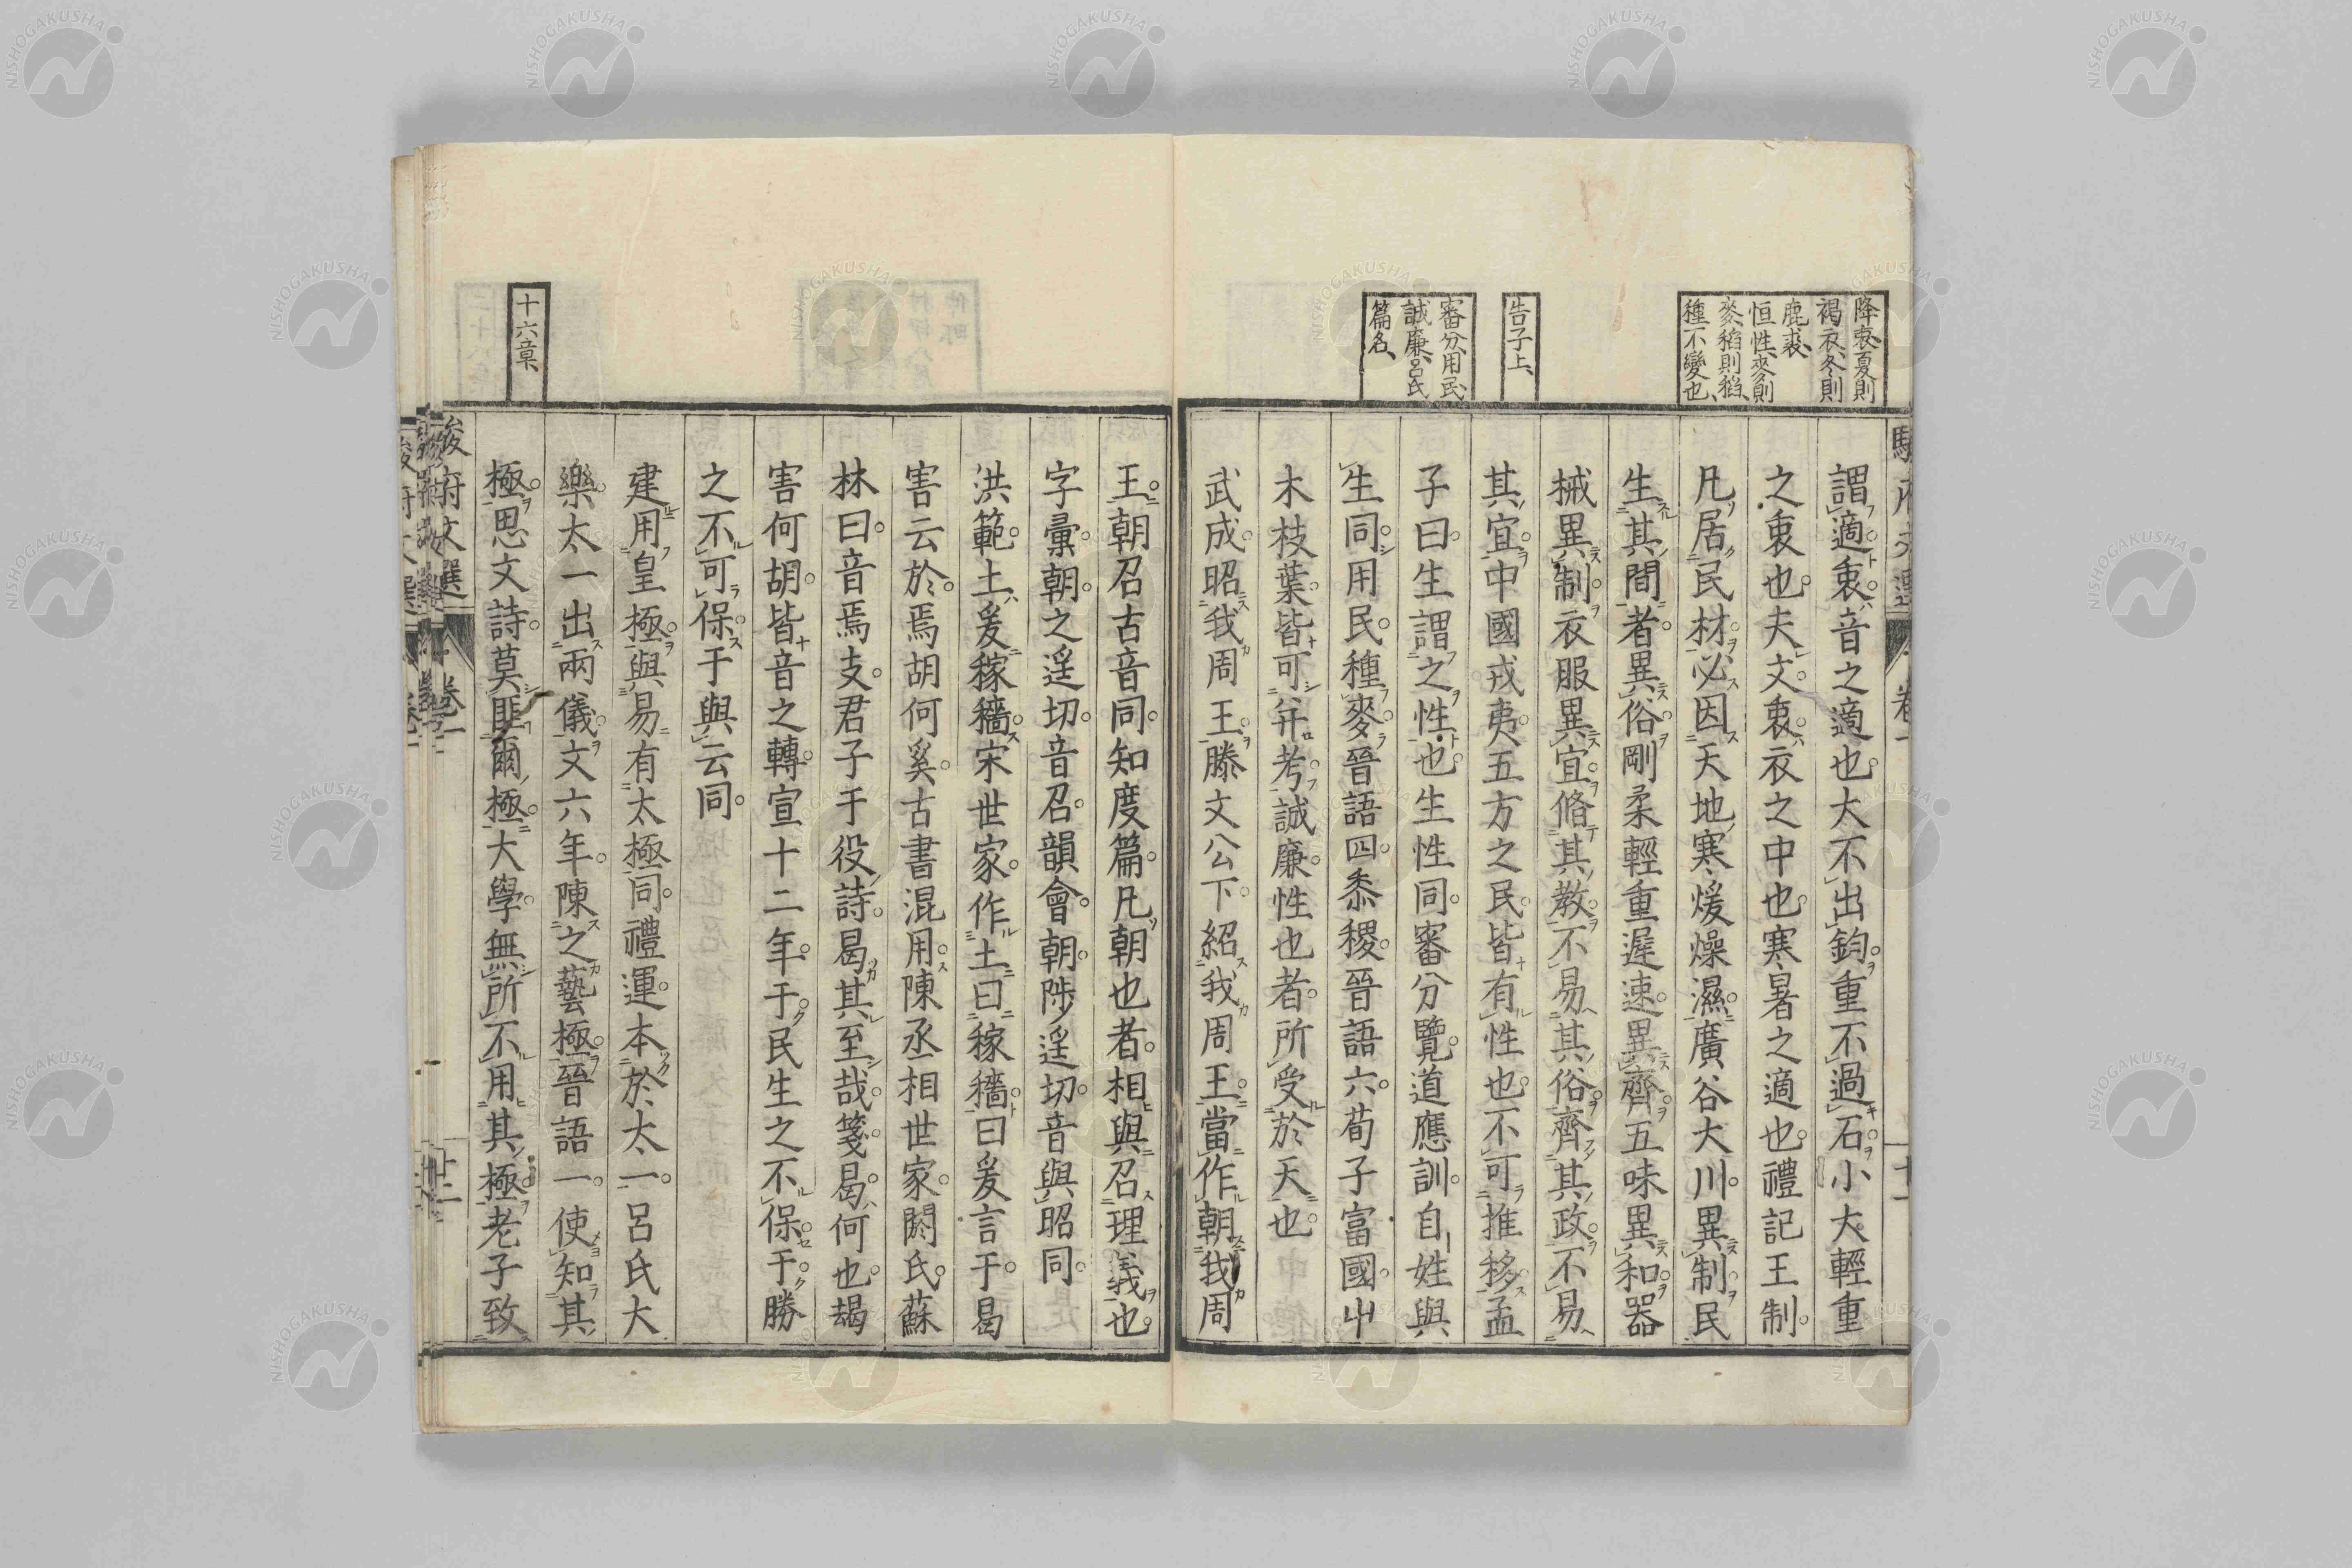 降衷、夏則
褐衣、冬則
鹿裘、
恒性、麥則
麥、稻則稻、
種不變也、
告子上、
審分、用民、
誠廉、呂氏
篇名、
謂適衷音之適也大不出鈞重不過石小大輕重
之衷也夫文衷衣之中也寒暑之適也禮記王制
凡居民材必因天地寒煖燥濕廣谷大川異制民
生其間者異俗剛柔輕重遲速異齊五味異和器
械異制衣服異宜脩其教不易其俗齊其政不易
其宜中國戎夷五方之民皆有性也不可推移孟
子曰生謂之性也生性同審分覽道應訓自姓與
生同用民種麥晉語四黍稷晉語六荀子富國屮
木枝葉皆可并考誠廉性也者所受於天也
武成昭我周王滕文公下紹我周王當作朝我周
王朝召古音同知度篇凡朝也者相與召理義也
字彙朝之遥切音召韻會朝陟遥切音與昭同
洪範土爰稼穡宋世家作土曰稼穡曰爰言于曷
害云於焉胡何奚古書混用陳丞相世家閼氏蘇
林曰音焉支君子于役詩曷其至哉箋曷何也曷
害何胡皆音之轉宣十二年于民生之不保于勝
之不可保于與云同
建用皇極與易有太極同禮運本於太一呂氏大
樂太一出兩儀文六年陳之藝極晉語一使知其
極思文詩莫匪爾極大學無所不用其極老子致
十六章、
駿府文選
卷一
十二